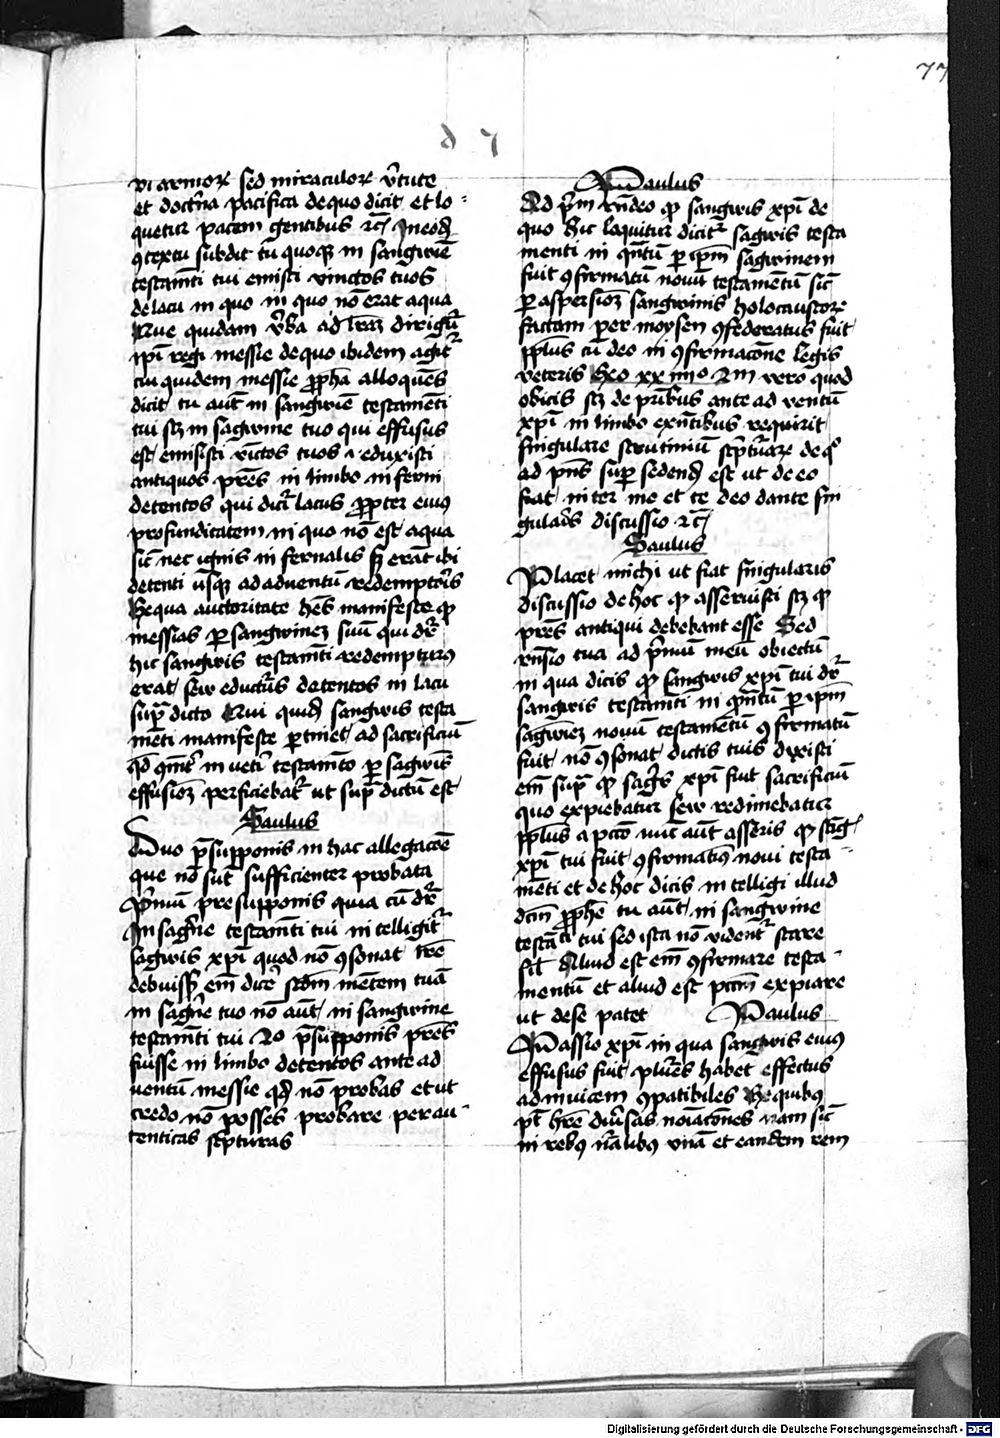 77
d 7
vi armoꝝ sed miraculoꝝ v̄tute
et doct̄na pacifica de quo dicit et lo-
quetur pacem gentibus ⁊c̄ In eod̄
ꝯtextu subdit tu quoqꝫ in sangwīe
testam̄ti tui emisti vinctos tuos
de lacu in quo in quo nō erat aqua
Que quidam v̄ba ad l̄raꝫ dirigūt̄
ip̄i regi messie de quo ibidem agit̄
cui quidem messie ꝓph̄a alloquēs
dicit tu aut̄ in sangwīe testamēti
tui sꝫ in sagwine tuo qui effusus
est emisisti vīctos tuos ⁊ eduxisti
antiquos pr̄es in limbo inferni
detentos qui dicit̄ lacus ꝓpter eius
profunditatem in quo nō est aqua
sic̄ nec ignis infernalis sꝫ erāt ibi
detenti usqꝫ ad aduentū redemptoris
Ex qua auctoritate hēs manifeste ꝙ
messias ꝑ sangwineꝫ suū qui dr̄
hic sangwis testam̄ti redempturus
erat seu educturus detentos in lacu
sup̄dicto Qui quid̄ sangwis testa
mēti manifeste ꝑtinet ad sacrificiū
in veti testam̄to ꝑ sagwis
effusioꝫ perficiebat̄ ut sup̄ dictū est
Saulus
Duo p̄supponis in hac allegacōe
que nō sūt sufficienter probata
P̄mū presupponis quia cū dr̄
In sagīne testam̄ti tui intelligit̄
sagwis xp̄i quod nō ꝯsonat l̄re
debuiss̄ em̄ dic̄e scd̄m mētem tuā
in sagīne tuo nō aut̄ in sangwine
testam̄ti tui 2o p̄supponis pr̄es
fuisse in limbo detentos ante ad
uentū messie qd̄ nō probas et ut
credo nō posses probare per au-
tenticas sc̄pturas
Paulus
Ad p̄m rn̄deo ꝙ sangwis xp̄i de
quo hic loquitur dicit̄ sagwis testa
menti in qn̄tū ꝑ ip̄m sagwinem
fuit ꝯfirmatū nouū testamētū sic̄
ꝑ aspersioꝫ sangwinis holocaustoꝝ
factam per moysen ꝯfederatus fuit
ppl̄us cū deo in ꝯfirmacōne legis
veteris Exo xx iiiio 2m vero quod
obicis sꝫ de pr̄ibus ante aduentū
xp̄i in limbo exn̄tibus requirit
singulare scrutiniū sc̄pturaꝝ de qo
ad pn̄s sup̄sedend̄ est ut de eo
fiat inter me et te deo dante sin
gularis discussio ⁊c̄
Saulus
Placet michi ut fiat singularis
discussio de hoc ꝙ asseruisti sꝫ ꝙ
pr̄es antiqui debebant esse Sed
rn̄sio tua ad p̄mū meū obiectū
in qua dicis ꝙ sangwis xp̄i tui dr̄
sangwis testam̄ti in qn̄tū ꝑ ip̄m
sagwieꝫ nouū testamētū ꝯfirmatū
fuit nō ꝯsonat dictis tuis dixisti
em̄ sup̄ ꝙ saḡs xp̄i fuit sacrificiū
quo expiebatur seu redimebatur
ppl̄us a pctō nūc aut̄ asseris ꝙ sāḡ
xp̄i tui fuit ꝯfirmatiuus noui testa-
mēti et de hoc dicis intelligi illud
dcm̄ ꝓphē tu aut̄ in sangwine
testā ti tui sed ista nō vident̄ stare
sil̄ Aliud est em̄ ꝯfirmare testa-
mentū et aliud est pctm̄ expiare
ut de se patet Paulus
Passio xp̄i in qua sangwis eius
effusus fuit plures habet effectus
adinuicem ꝯpatibiles Ex quibus
pt̄ hr̄e diu̾sas noīacōnes nam sic̄
in rebus nāl̄ibus vnā et eandem rem
Digitalisierung gefördert durch die Deutsche Forschungsgemeinschaft - DFG